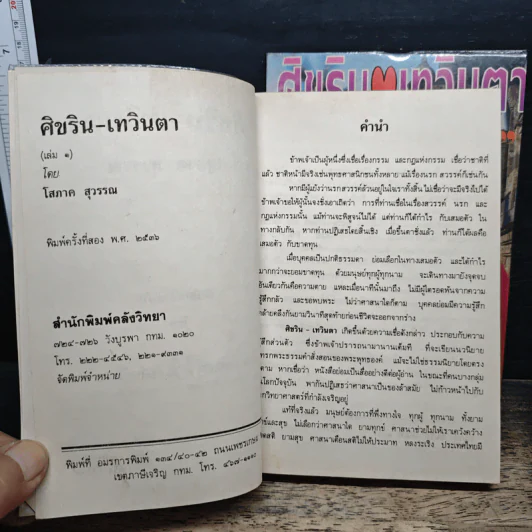 ศิขรินเทวินตา
ศิขริน-เทวินตา
(เล่ม ๑)
โดย
โสภาค สุวรรณ
พิมพ์ครั้งที่สอง พ.ศ. ๒๕๓๖
สำนักพิมพ์คลังวิทยา
๗๒๔-๗๒๖ วังบูรพา กทม. ๑๐๒๐
โทร. ๒๒๒-๔๕๔๖, ๒๒๑-๙๓๓๑
จัดพิมพ์จำหน่าย
พิมพ์ที่ อมรการพิมพ์ ๑๓๔/๔๐-๔๒ ถนนเพชรเกษม
เขตภาษีเจริญ กทม. โทร. ๔๖๗-๑๑๐๐
คำนำ
ข้าพเจ้าเป็นผู้หนึ่งซึ่งเชื่อเรื่องกรรม และกฎแห่งกรรม เชื่อว่าชาติที่
แล้ว ชาติหน้ามีจริงเช่นพุทธศาสนิกชนทั้งหลาย แม้เรื่องนรก สวรรค์ก็เช่นกัน
หากมีผู้แย้งว่านรกสวรรค์ล้วนอยู่ในใจเราทั้งสิ้น ไม่เชื่อว่าจะมีจริงไปได้
ข้าพเจ้าขอให้ผู้นั้นจงชั่งเอาเถิดว่า การที่ท่านเชื่อในเรื่องสวรรค์ นรก และ
กฎแห่งกรรมนั้น แม้ท่านจะพิสูจน์ไม่ได้ แต่ท่านก็ได้กำไร กับเสมอตัว ใน
ทางกลับกัน หากท่านปฏิเสธโดยสิ้นเชิง เมื่อขึ้นตาชั่งแล้ว ท่านก็ได้แต่คือ
เสมอตัว กับขาดทุน
เมื่อบุคคลเป็นปกติธรรมดา ย่อมเลือกในทางเสมอตัว และได้กำไร
มากกว่าจะยอมขาดทุน ด้วยมนุษย์ทุกผู้ทุกนาม จะเดินทางมายังจุดจบ
อันเดียวกันคือความตาย แหละเมื่อนาทีนั้นมาถึง ไม่มีผู้ใดรอดพ้นจากความ
รู้สึกกลัว และขอพบพระ ไม่ว่าศาสนาใดก็ตาม บุคคลย่อมมีความรู้สึก
คล้ายคลึงกันยามวินาทีสุดท้ายก่อนชีวิตจะออกจากร่าง
ศิขริน - เทวินตา เกิดขึ้นด้วยความเชื่อดังกล่าว ประกอบกับความ
รู้สึกส่วนตัว ซึ่งข้าพเจ้าปรารถนามานานเต็มที ที่จะเขียนนวนิยาย
แทรกพระธรรมคำสั่งสอนของพระพุทธองค์ แม้จะไม่ใช่ธรรมนิยายโดยตรง
ตาม หากเชื่อว่า หนังสือย่อมเป็นสื่ออย่างดีต่อผู้อ่าน ในขณะที่คนบางกลุ่ม
โลกปัจจุบัน พากันปฏิเสธว่าศาสนาเป็นของล้าสมัย ไม่ก้าวหน้าไปกับ
วิทยาศาสตร์ที่กำลังเจริญอยู่
แท้ที่จริงแล้ว มนุษย์ต้องการที่พึ่งทางใจ ทุกผู้ ทุกนาม ทั้งยาม
และสุข ไม่เลือกว่าศาสนาใด ยามทุกข์ ศาสนาช่วยไม่ให้เราเคว้งคว้าง
สติ ยามสุข ศาสนาเตือนสติไม่ให้ประมาท หลงระเริง ประเทศไทยมี